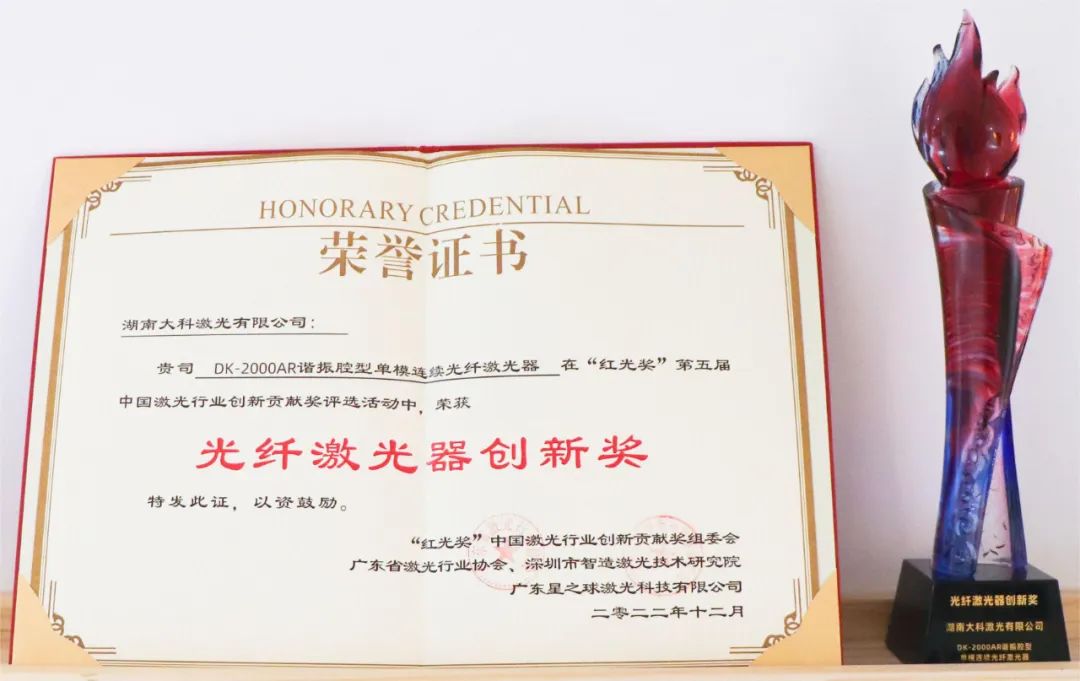 HONORARY CREDENTIAL
荣誉证书
湖南大科激光有限公司：
贵司 DK-2000AR谐振腔型单模连续光纤激光器 在“红光奖”第五届
中国激光行业创新贡献奖评选活动中，荣获
光纤激光器创新奖
特发此证，以资鼓励。
“红光奖”中国激光行业创新贡献奖组委会
广东省激光行业协会、深圳市智造激光技术研究院
广东星之球激光科技有限公司
二零二二年十二月
光纤激光器创新奖
湖南大科激光有限公司
DK-2000AR谐振腔型
单模连续光纤激光器